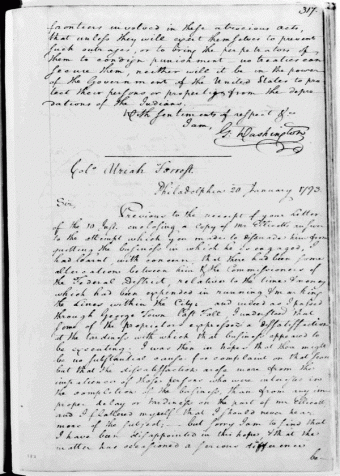 317.
frontiers involved in these atrocious acts,
that unless they will exert themselves to prevent
such outrages, or to bring the perpetrators of
them to condign punishment no treaties can
secure them, neither will it be in the power
of the Government of the United States to pro
tect their persons or property from the depre
dations of the Indians.
With sentiments of respect &c
I am,
G. Washington
Colo. Uriah Forrest.
Philadelphia 20 January 1793.
Sir,
Previous to the receipt of your letter
of the 10 Inst. enclosing a copy of Mr. Ellicott's answer
to the attempt which you made to dissuade him from
quitting the business in which he is engaged, I
had learnt, with concern, that there had been some
altercations between him & the Commissioners of
the Federal District, relative to the time & money
which had been expended in running & marking
the lines within the City: and indeed as I passed
through George Town last Fall, I understood that
some of the Proprietors expressed a dissatisfaction
at the tardiness with which that business appeared to
be executing. I was then in hopes that there might
be no substantial cause for complaint on that score
but that the dissatisfaction arose more from the
impatience of those persons who were interested in
the completion of the business, than from any im
proper delay or tardiness on the part of Mr. Ellicott
and I flattered myself that I should never hear
more of the subject; but sorry I am to find that
I have been disappointed in this hope, & that the
matter has occasioned a serious difference
be